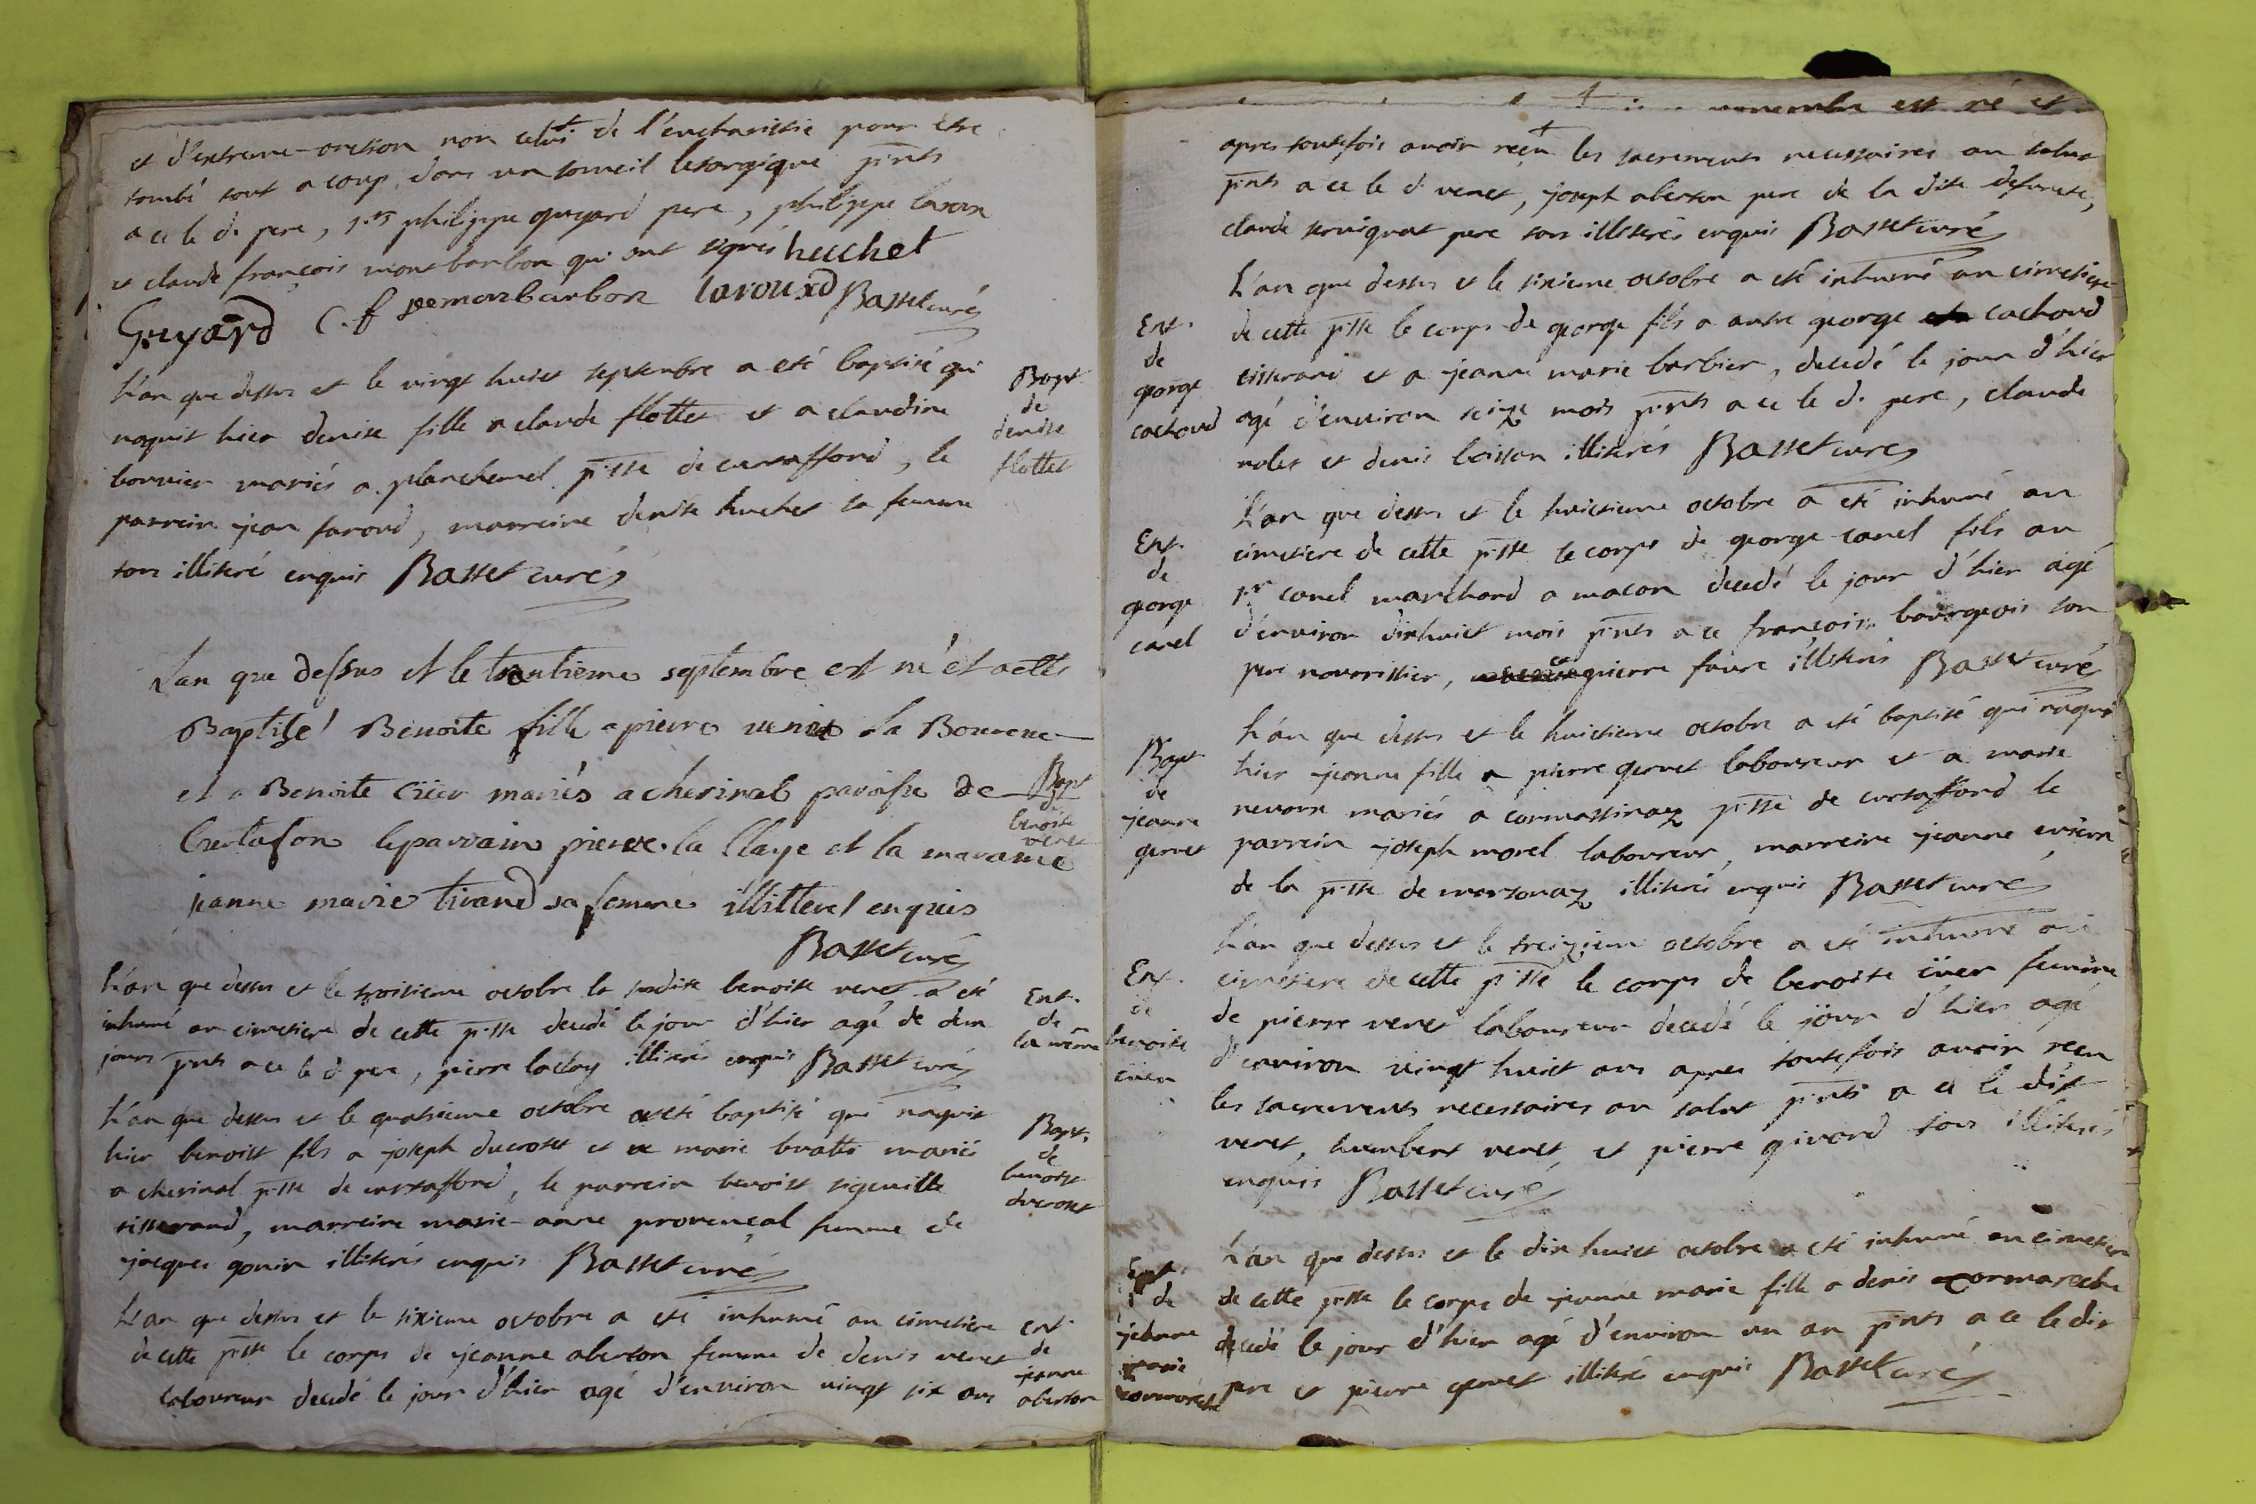 et d'extreme-onction non celui de l'eucharistie pour etre
tombé tout a coup, dans un sommeil letargique pnts
a ce le d. pere, philippe guyard pere, philippe
et claude françois montbarbon qui ont signés huchet
Guyard C. f demonbarbon laroux Basset curé
L'an que dessus et le vingt huict septembre a eté baptisé qui
naquit hier denise fille a claude flottet et a claudine
bouvier mariés a planchemel psse de curtafford, le
parrein jean farond, marreine denise huchet sa femme
tous illiteré enquis Basset curé
Bapt
de
denise
flottet
Lan que dessus et le trentieme septembre est né et a ette
Baptisé Benoite fille a pierre venet
et a Benoite Cüer mariés a cherinal paroisse de
Curtafon le parrain pierre la Claye et la maraine
jeanne marie tirand sa femme illitteres enquis
Basset curé
Bapt
benoite
venet
L'an que dessus et le troisieme octobre la susdite benoite venet a eté
inhumé au cimetiere de cette psse decedé le jour d'hier agé de deux
jours pnts a ce le d. pere, pierre laclay illiterés enquis Basset curé
Ent.
de
la même
L'an que dessus et le quatrieme octobre a eté baptisé qui naquit
hier benoist fils a joseph ducrotet et a marie buatte mariés
a cherinal psse de curtafford, le parrein benoist
tisserand, marreine marie-anne provençal femme de
jacques gonin illiterés enquis Basset curé
Bapt.
de
benoist
ducrotet
L'an que dessus et le sixieme octobre a eté inhumé au cimetiere
de cette psse le corps de jeanne aberton femme de denis venet
laboureur decedé le jour d'hier agé d'environ vingt six ans
Ent.
de
jeanne
aberton
novembre est né et
apres toutefois avoir reçu les sacrements necessaires au salut
pnts a ce le d. venet, joseph aberton pere de la dite defunte,
claude servignat pere tous illiterés enquis Basset curé
L'an que dessus et le sixieme octobre a eté inhumé au cimetiere
de cette psse le corps de george fils a autre george cachord
tisserand et a jeanne marie barbier, decedé le jour d'hier
agé d'environ seize mois pnts a ce le d. pere, claude
nolet et denis loisson illiterés Basset curé
Ent.
de
george
cachord
L'an que dessus et le huictieme octobre a eté inhumé au
cimetiere de cette psse le corps de george canel fils au
sr canel marchand a macon decedé le jour d'hier agé
d'environ dixhuict mois pnts a ce françois bourgeois son
pere nourrissier, pierre favre illiterés Basset curé
Ent.
de
george
canel
L'an que dessus et le huictieme octobre a eté baptisé qui naquit
hier jeanne fille a pierre gervet laboureur et a marie
nevoux mariés a cormassinaz psse de curtafford le
parrein joseph morel laboureur, marreine jeanne
de la psse de marsonaz illiterés enquis Basset curé
Bapt
de
jeanne
gervet
L'an que dessus et le treizieme octobre a eté inhumé au
cimetiere de cette psse le corps de benoite cüer femme
de pierre venet laboureur decedé le jour d'hier agé
d'environ vingt huict ans apres toutefois avoir reçu
les sacrements necessaires au salut pnts a ce le dit
venet, humbert venet, et pierre givord tous illiterés
enquis Basset curé
Ent.
de
benoite
cüer
L'an que dessus et le dix huict octobre a eté inhumé au cimetiere
de cette psse le corps de jeanne marie fille a denis cormareche
decedé le jour d'hier agé d'environ un an pnts a ce le dit
pere et pierre gervet illiterés enquis Basset curé
Ent.
de
jeanne
marie
cormareche